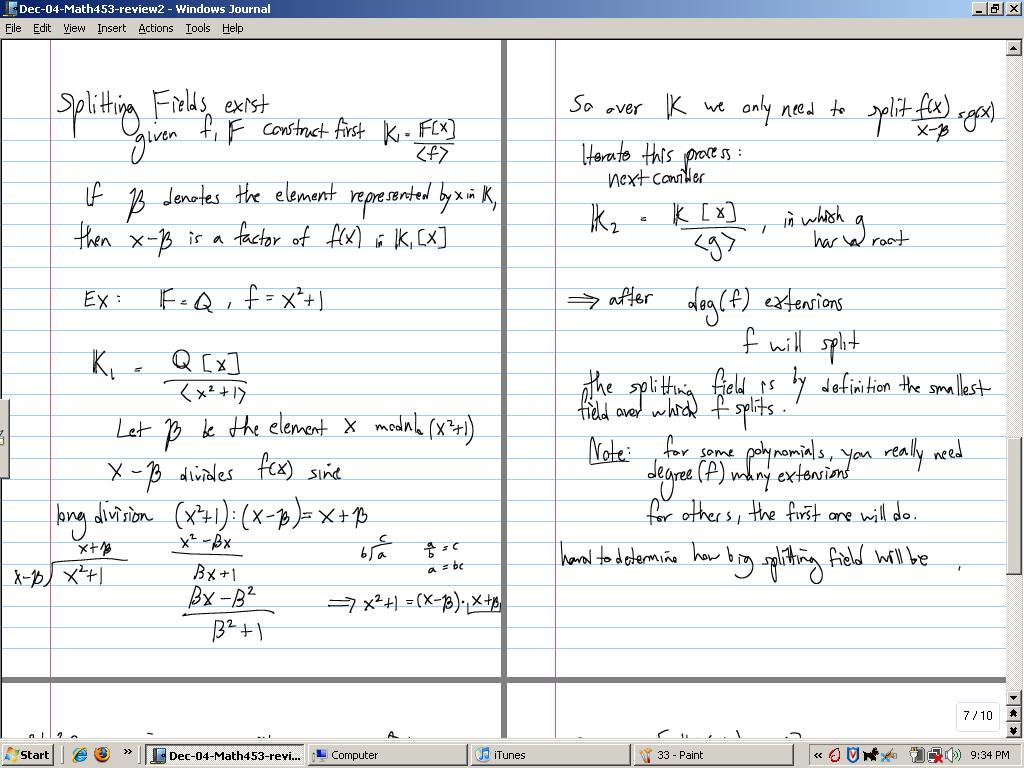 Dec-04-Math453-review2 - Windows Journal
File Edit View Insert Actions Tools Help
Splitting Fields exist
given f, F construct first K₁ = F[x] / <f>
If β denotes the element represented by x in K₁
then x-β is a factor of f(x) in K₁[x]
Ex: F = Q, f = x²+1
K₁ = Q[x] / <x²+1>
Let β be the element x modulo (x²+1)
x-β divides f(x) since
long division (x²+1):(x-β) = x+β
x+β
x-β) x²+1
x²-βx
βx+1
βx-β²
β²+1
c
b) a
a/b = c
a = bc
⟹ x²+1 = (x-β)·x+β
So over K we only need to split f(x)/(x-β) = g(x)
Iterate this process:
next consider
K₂ = K[x] / <g>, in which g
has a root
⟹ after deg(f) extensions
f will split
the splitting field is by definition the smallest
field over which f splits.
Note: for some polynomials, you really need
degree(f) many extensions
for others, the first one will do.
hard to determine how big splitting field will be
7 / 10
Start
»
Dec-04-Math453-revi...
Computer
iTunes
33 - Paint
«
9:34 PM